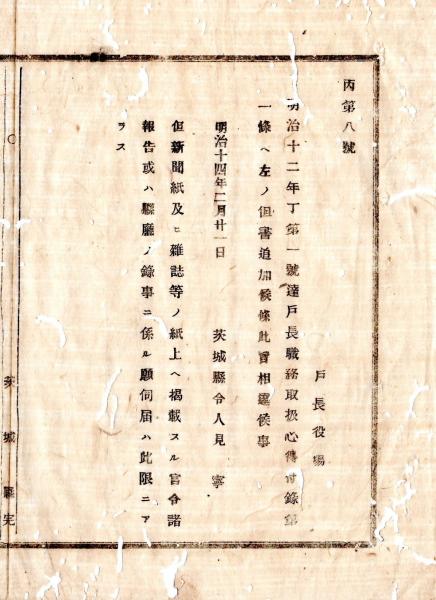 丙第八號
戸長役場
明治十二年丁第一號達戸長職務取扱心得付錄第
一條ヘ左ノ但書追加候條此旨相達候事
明治十四年二月廿一日　茨城縣令人見　寧
但新聞紙及ヒ雜誌等ノ紙上ヘ揭載スル官令諸
報告或ハ縣廳ノ錄事ニ係ル願伺届ハ此限ニア
ラス
茨城縣